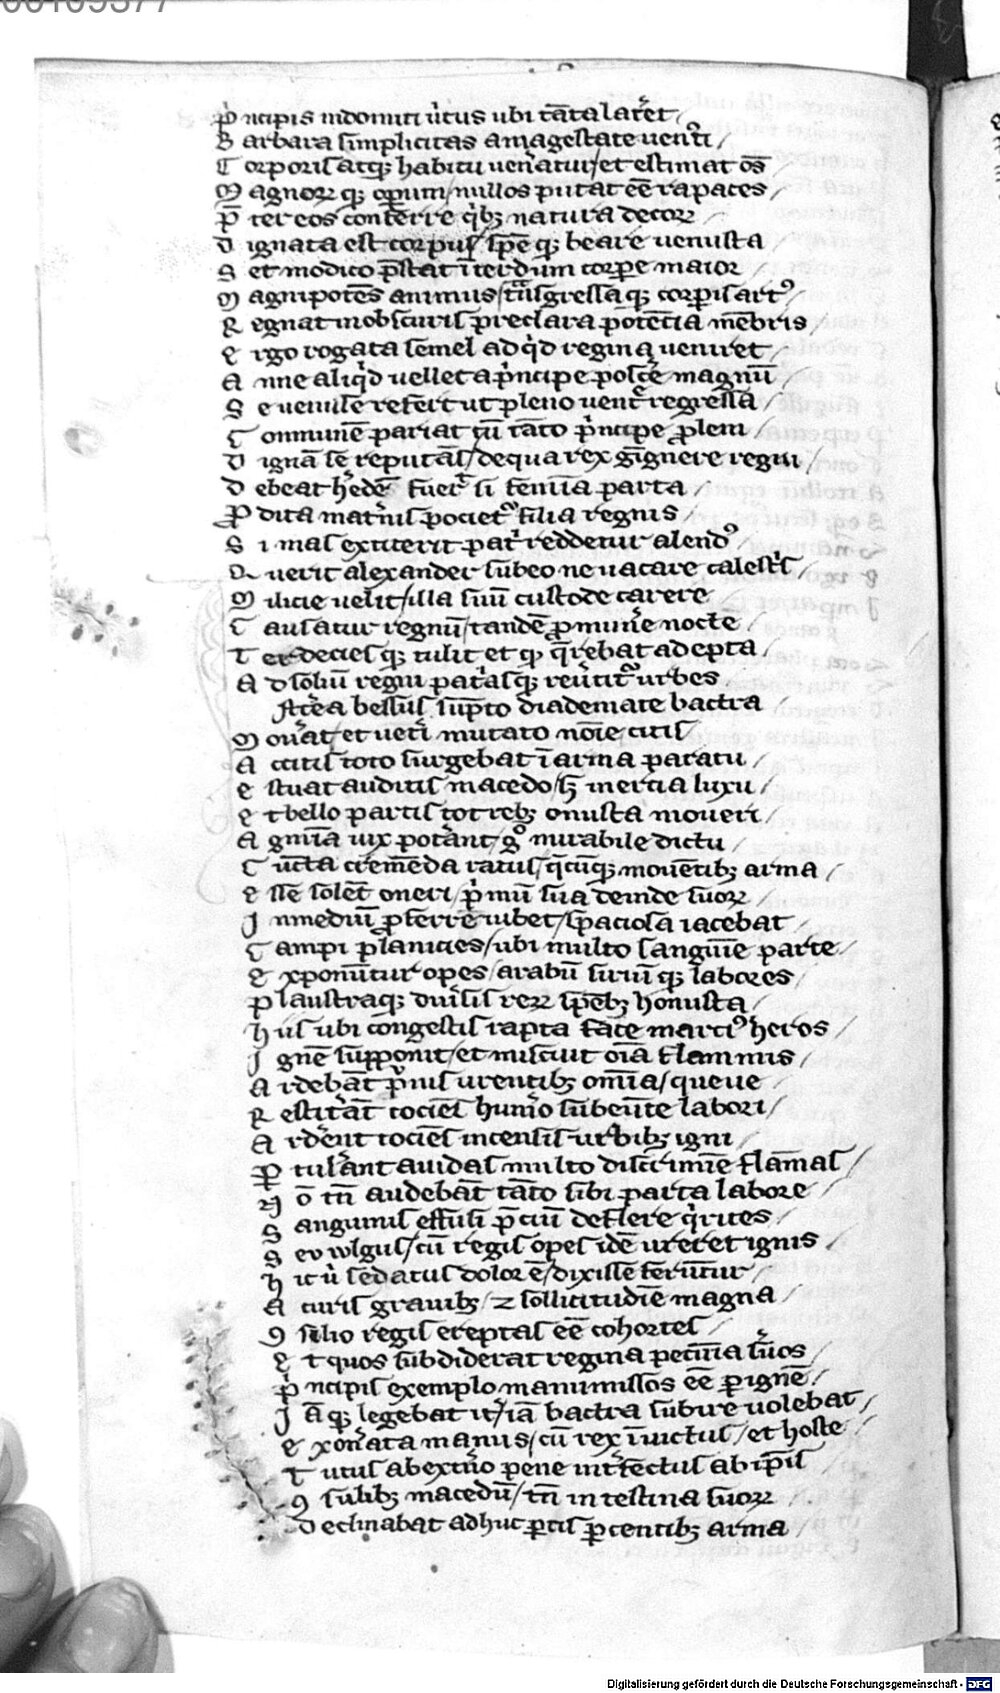 00109377
P̾ncipis indomiti u̾tus ubi ta̅ta lar̾et
B arbara simplicitas a magestate uenit̾i
C orporis atqꝫ habitu uen̾atur / et estimat o̅s
M agnoꝝ qꝫ op̾um / nullos putat e̅e rapaces
P̅ ter eos conferre q̾bꝫ natura decoꝝ
D ignata est corpus / sp̅e qꝫ beare uenusta
S et modico p̅stat i̅terdum corpe maior
M agnipote̅s animus / tn̅sgressaqꝫ corpis art᾿
R egnat in obscuris preclara pote̅tia me̅bris
E rgo rogata semel ad q̾d regina ueniret
A nne aliq̾d uellet a p̾ncipe posc̾e magnu̅
S e uenisse refert ut pleno uent̾ regressa
C ommune̅ pariat cu̅ ta̅to p̾ncipe prolem
D igna̅ se reputa̅s / de qua rex gi̅gnere regni
D ebeat h̾ede̅ fuer̾ si femi̅a parta
P dita mat̾nis pociet᾿ filia regnis
S i mas extiterit pat̾ reddetur alend᾿
Q uerit alexander sub eo ne uacare calest̾s
M ilicie uelit / illa suu̅ custode carere
C ausatur regnu̅ / tande̅ pro mun̾e nocte
T er decies qꝫ tulit et qͦ q̅rebat adepta
A d soliu̅ regni pat̾asqꝫ reu̾tit᾿ urbes
Int̾ea bessus su̅pto diademate bactra
M ou̾at / et uet̾i mutato no̅ie citis
A ccitis toto surgebat i̅ arma paratu
E stuat auditis macedo / sꝫ inertia luxu
E t bello partis tot rebꝫ onusta moueri
A gmi̅a uix pot̾ant / gͦ mirabile dictu
C u̅cta crema̅da ratus / q̅cu̅qꝫ moue̅tibꝫ arma
E sse sole̅t oneri / p̾mu̅ sua deinde suoꝝ
I n mediu̅ proferre iubet / spaciosa iacebat
C ampi planicies / ubi multo sangui̅e parte
E xponu̅tur opes / arabu̅ siriu̅ qꝫ labores
P laustraqꝫ diu̾sis reꝝ sp̅ebꝫ honusta
H iis ubi congestis rapta face marci᾿ heros
I gne̅ supponit / et misciut oi̅a flammis
A rdeba̅t p̾nis urentibꝫ omi̅a / queue
R estit̾a̅t tocies hum̾o subeu̅te labori
A rd̾ent tocie̅s incensis urbibꝫ igni
P tul̾ant auidas multo disc̾imi̅e fla̅mas
N o̅ tn̅ audeba̅t ta̅to sibi parta labore
S anguinis effusi p̅ciu̅ deflere q̾rites
S eu wlgus / cu̅ regis opes ide̅ ureret ignis
H ic u̾ sedatus dolor e̅ / dixisse feru̅tur
A curis grauibꝫ / ⁊ sollicitudi̅e magna
Ꝯ silio regis ereptas e̅e cohortes
E t quos subdiderat regina pecu̅ia s̾uos
P̾ ncipis exemplo manumissos e̅e p igne̅
I a̅qꝫ legebat it̾ / ia̅ bactra subire uolebat
E xon̾ata manus / cu̅ rex i̅uictus / et hoste
T utus ab ext̾no pene int̾fectus ab ip̅is
Ꝯ sulibꝫ macedu̅ / tn̅ intestina suoꝝ
D eclinabat adhuc p̅cis p̅centibꝫ arma
Digitalisierung gefördert durch die Deutsche Forschungsgemeinschaft - DFG